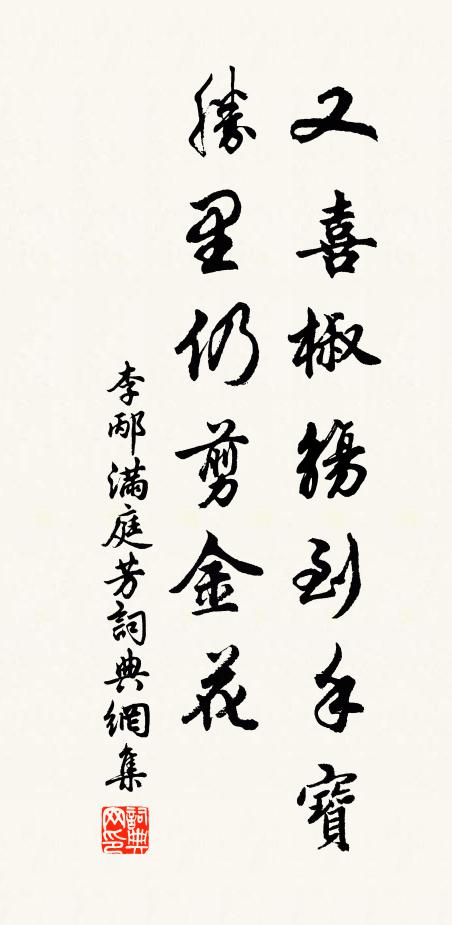 又喜椒觴到手寶
勝里仍剪金花
李邴滿庭芳詞典網集
詞典
网印